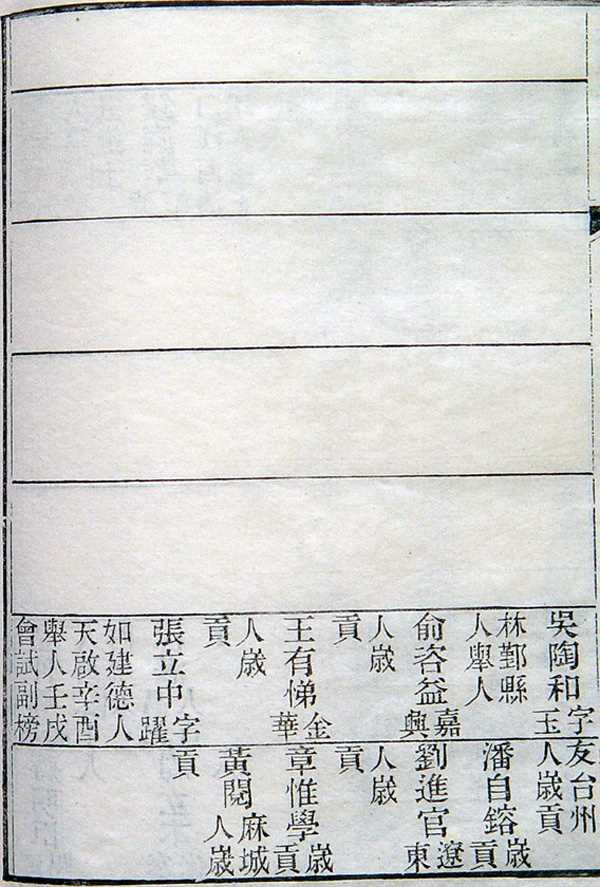 吳陶和字玉
林鄞縣
人舉人
俞咨益嘉興
人歲
貢
王有悌金華
人歲
貢
張立中字躍
如建德人
天啟辛酉
舉人壬戌
會試副榜
友台州
人歲貢
潘自鎔歲貢
劉進官遼東
人歲
貢
章惟學歲貢
黃閱麻城人歲
貢